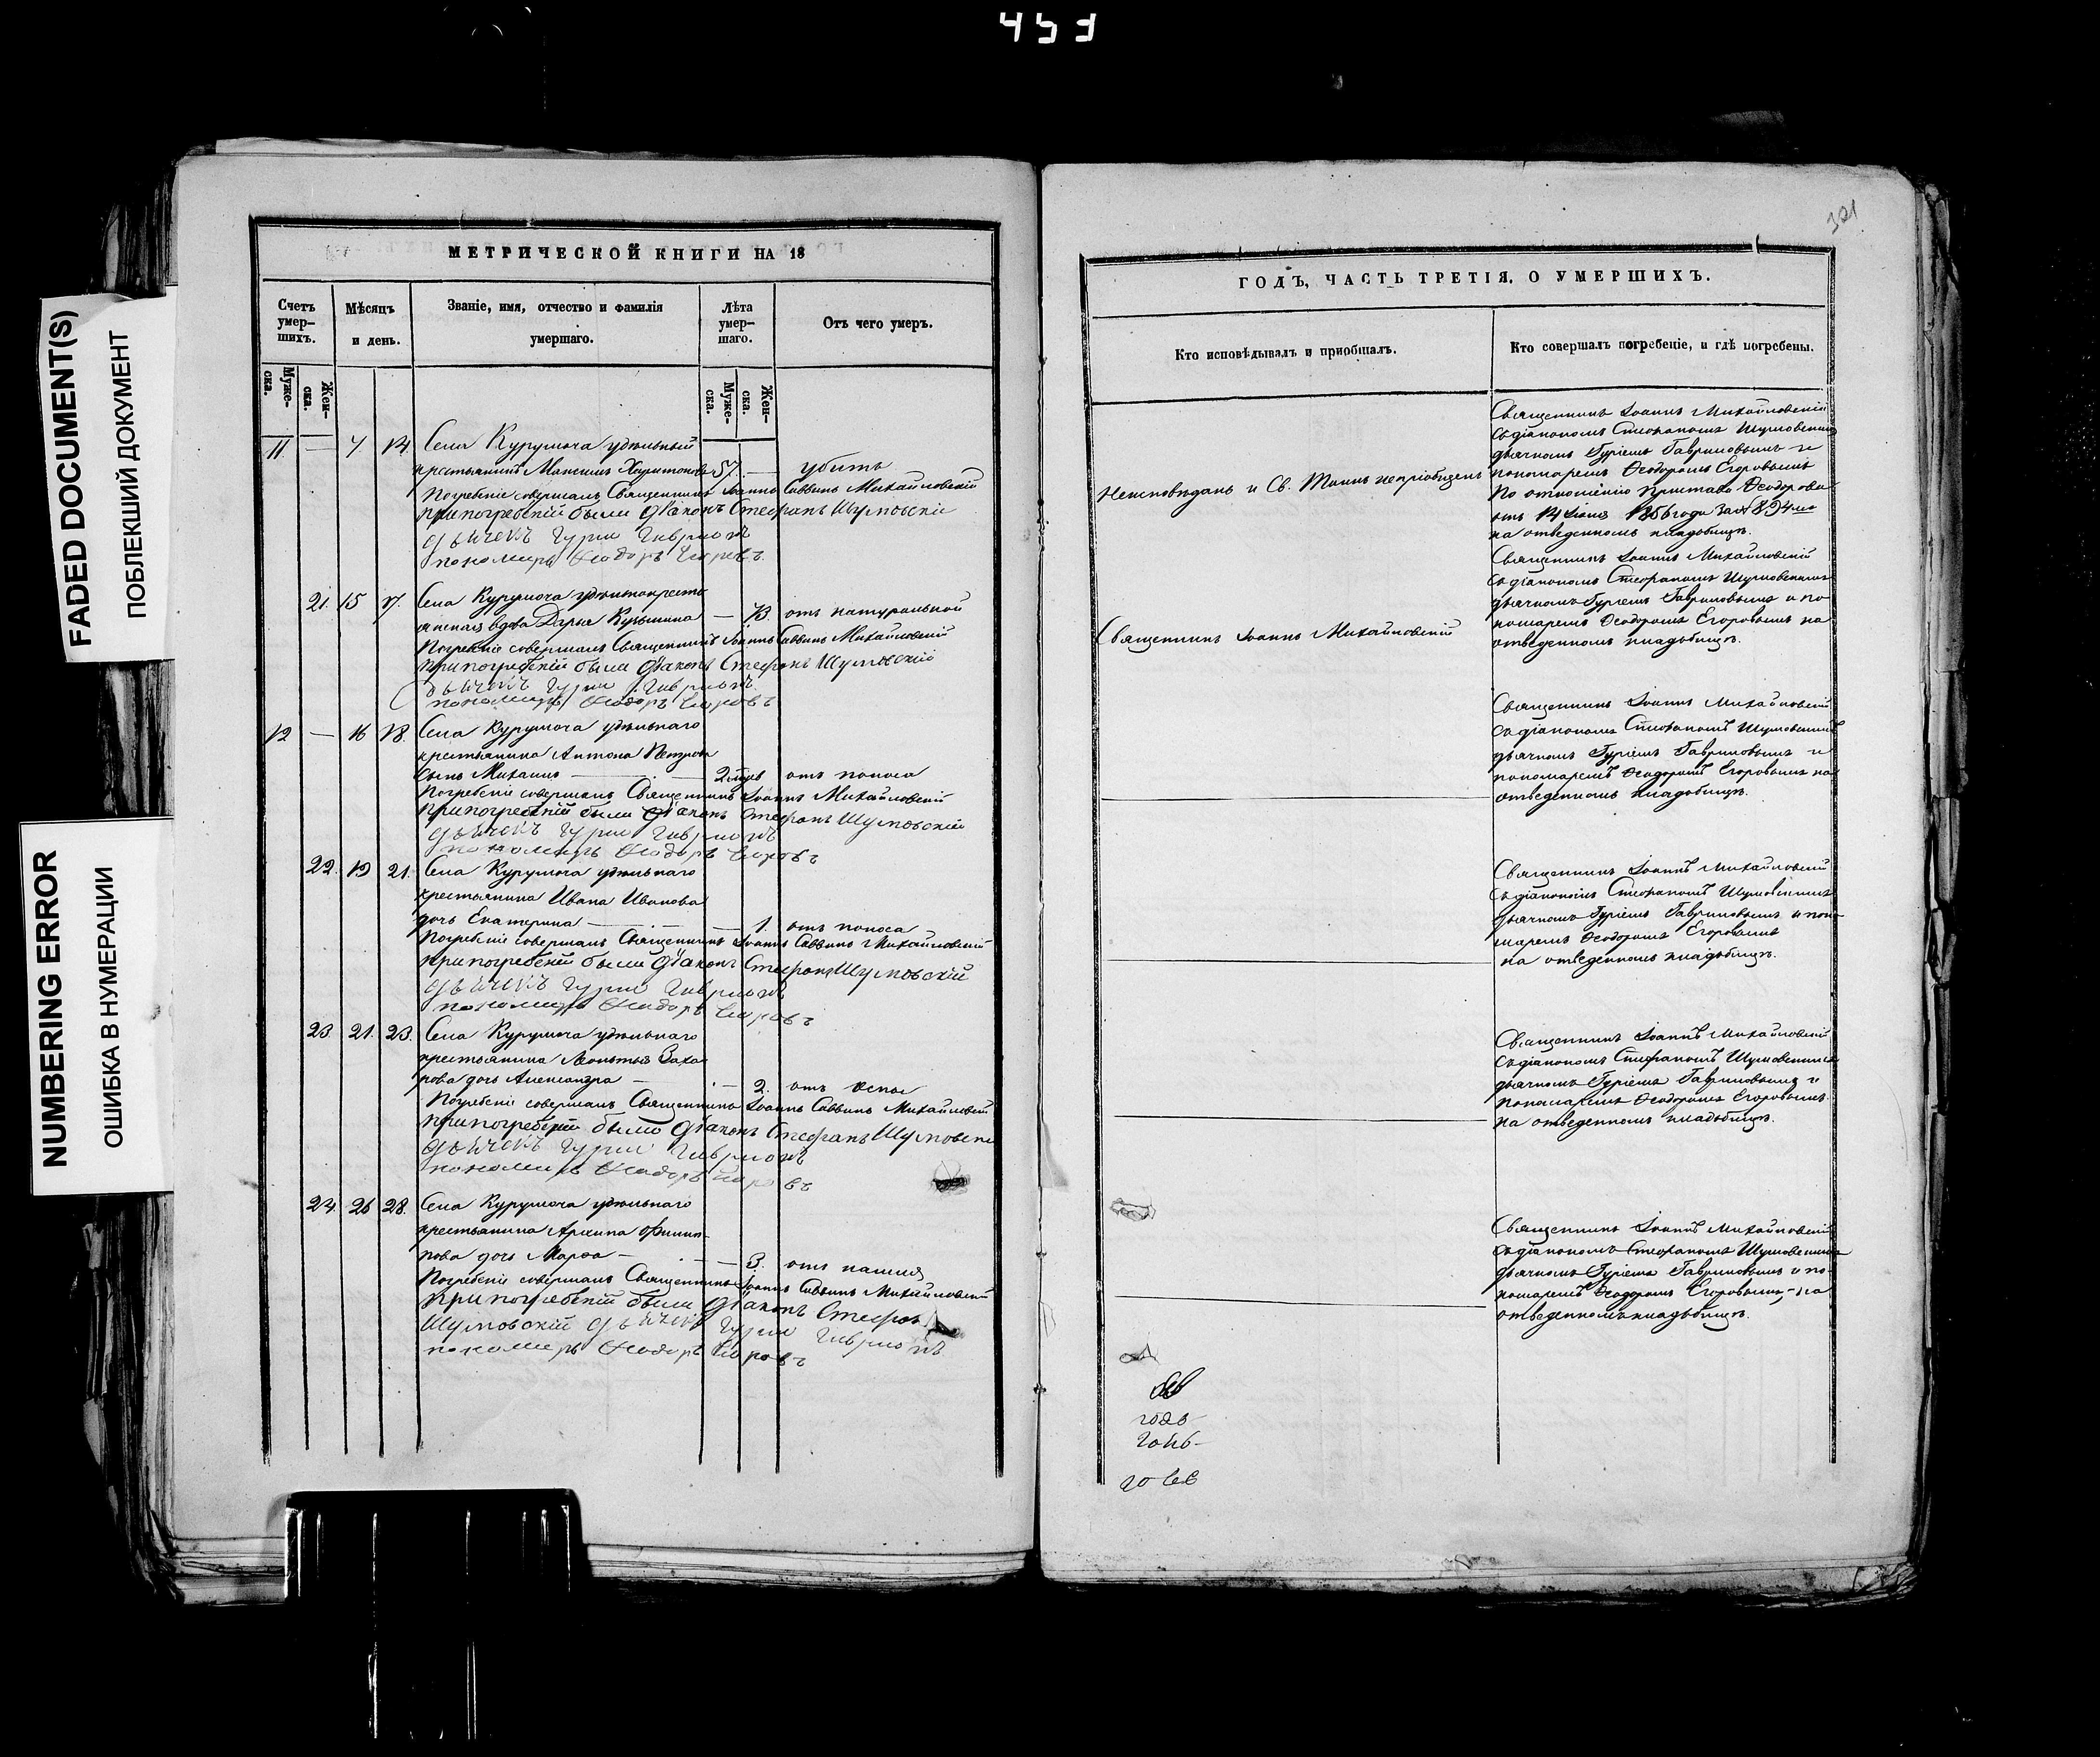 453
FADED DOCUMENT(S)
ПОБЛЕКШИЙ ДОКУМЕНТ
NUMBERING ERROR
ОШИБКА В НУМЕРАЦИИ
МЕТРИЧЕСКОЙ КНИГИ НА 18
Счетъ умер-шихъ.
Мѣсяцъ и день.
Званіе, имя, отчество и фамилія умершаго.
Лѣта умер-шаго.
Отъ чего умеръ.
Муже-ска.
Жен-ска.
Муже-ска.
Жен-ска.
11 — 7 14. Села Курумоча удѣльный
крестьянинъ Максимъ Харитоновъ 57. — убитъ
Погребеніе совершалъ Священникъ Іоаннъ Саввинъ Михайловскій
при погребеніи были діаконъ Стефанъ Шумовскій
дьячекъ Гурій Гавриловъ
пономарь Ѳеодоръ Егоровъ.
21. 15 17. Села Курумоча удѣльнокресть
янская вдова Дарья Кузьмина — 73. отъ натуральной
Погребеніе совершалъ Священникъ Іоаннъ Саввинъ Михайловскій
при погребеніи были діаконъ Стефанъ Шумовскій
дьячекъ Гурій Гавриловъ
пономарь Ѳеодоръ Егоровъ
12 — 16 18. Села Курумоча удѣльнаго
крестьянина Антона Петрова
сынъ Михаилъ — отъ поноса
Погребеніе совершалъ Священникъ Іоаннъ Михайловскій
при погребеніи были діаконъ Стефанъ Шумовскій
дьячекъ Гурій Гавриловъ
пономарь Ѳеодоръ Егоровъ
22. 19 21. Села Курумоча удѣльнаго
крестьянина Ивана Иванова
дочь Екатерина — — 1. отъ поноса
Погребеніе совершалъ Священникъ Іоаннъ Саввинъ Михайловскій
при погребеніи были діаконъ Стефанъ Шумовскій
дьячекъ Гурій Гавриловъ
пономарь Ѳеодоръ Егоровъ
23. 21. 23. Села Курумоча удѣльнаго
крестьянина Леонтья Заха
рова дочь Александра — — 2. отъ оспы
Погребеніе совершалъ Священникъ Іоаннъ Саввинъ Михайловскій
при погребеніи были діаконъ Стефанъ Шумовскій
дьячекъ Гурій Гавриловъ
пономарь Ѳеодоръ Егоровъ
24. 26 28. Села Курумоча удѣльнаго
крестьянина Архипа Филип-
пова дочь Марѳа — — 3. отъ кашля
Погребеніе совершалъ Священникъ Іоаннъ Саввинъ Михайловскій
при погребеніи были діаконъ Стефанъ
Шумовскій дьячекъ Гурій Гавриловъ
пономарь Ѳеодоръ Егоровъ
321
ГОДЪ, ЧАСТЬ ТРЕТІЯ, О УМЕРШИХЪ.
Кто исповѣдывалъ и пріобщалъ.
Кто совершалъ погребеніе, и гдѣ погребены.
Неисповѣданъ и Св. Таинъ непріобщенъ
Священникъ Іоаннъ Михайловскій
съ діакономъ Стефаномъ Шумовскимъ
дьячкомъ Гуріемъ Гавриловымъ и
пономаремъ Ѳеодоромъ Егоровымъ
По отношенію Пристава Ѳедорова
отъ 14 Іюня 1856 года за № 894мъ
на отведенномъ кладбищѣ.
Священникъ Іоаннъ Михайловскій
Священникъ Іоаннъ Михайловскій
съ діакономъ Стефаномъ Шумовскимъ
дьячкомъ Гуріемъ Гавриловымъ и по
номаремъ Ѳеодоромъ Егоровымъ на
отведенномъ кладбищѣ.
Священникъ Іоаннъ Михайловскій
съ діакономъ Стефаномъ Шумовскимъ
дьячкомъ Гуріемъ Гавриловымъ и
пономаремъ Ѳеодоромъ Егоровымъ на
отведенномъ кладбищѣ.
Священникъ Іоаннъ Михайловскій
съ діакономъ Стефаномъ Шумовскимъ
дьячкомъ Гуріемъ Гавриловымъ и поно-
маремъ Ѳеодоромъ Егоровымъ
на отведенномъ кладбищѣ.
Священникъ Іоаннъ Михайловскій
съ діакономъ Стефаномъ Шумовскимъ
дьячкомъ Гуріемъ Гавриловымъ и
пономаремъ Ѳеодоромъ Егоровымъ
на отведенномъ кладбищѣ.
Священникъ Іоаннъ Михайловскій
съ діакономъ Стефаномъ Шумовскимъ
дьячкомъ Гуріемъ Гавриловымъ и по-
номаремъ Ѳеодоромъ Егоровымъ, — на
отведенномъ кладбищѣ.